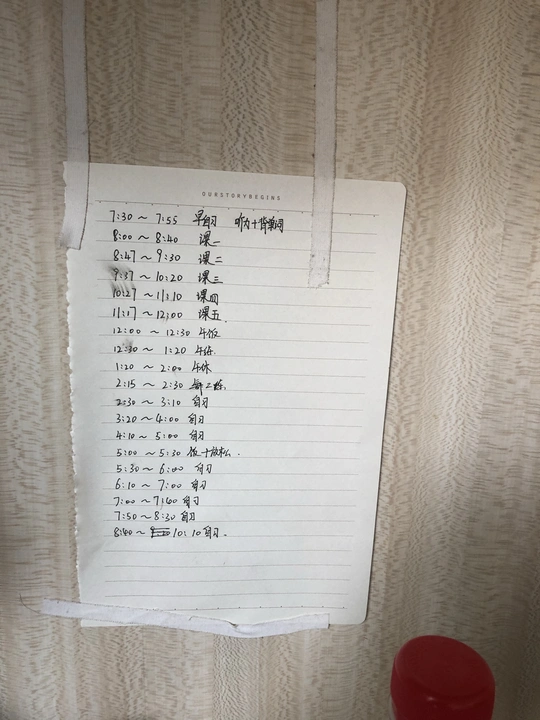 OURSTORYBEGINS
7:30 ~ 7:55 早自习 听力+背单词
8:00 ~ 8:40 课一
8:47 ~ 9:30 课二
9:37 ~ 10:20 课三
10:27 ~ 11:10 课四
11:17 ~ 12:00 课五.
12:00 ~ 12:30 午饭
12:30 ~ 1:20
1:20 ~ 2:00 午休
2:15 ~ 2:30
2:30 ~ 3:10 自习
3:20 ~ 4:00 自习
4:10 ~ 5:00 自习
5:00 ~ 5:30 饭+放松.
5:30 ~ 6:00 自习
6:10 ~ 7:00 自习
7:00 ~ 7:40 自习
7:50 ~ 8:30 自习
8:40 ~ 10:10 自习.